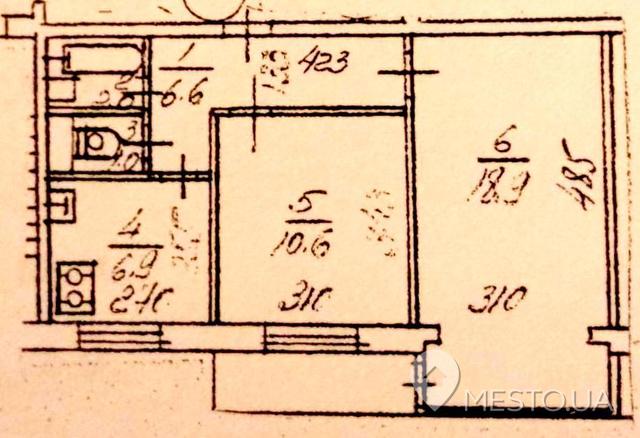 1
6.6
423
2
3
4
6.9
270
5
10.6
310
6
18.9
485
310
MESTO.UA